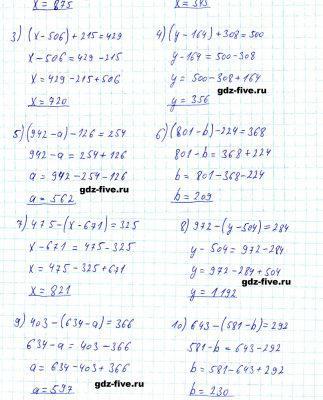 x = 875
x = 343
3) (x-506)+215=429
x-506=429-215
x=429-215+506
x=720
4) (y-164)+308=500
y-164=500-308
y=500-308+164
gdz-five.ru
y=356
gdz-five.ru
5) (942-a)-126=254
942-a=254+126
a=942-254-126
a=562
gdz-five.ru
6) (801-b)-224=368
801-b=368+224
b=801-368-224
b=209
gdz-five.ru
7) 475-(x-671)=325
x-671=475-325
x=475-325+671
x=821
gdz-five.ru
8) 972-(y-504)=284
y-504=972-284
y=972-284+504
y=1192
gdz-five.ru
9) 403-(634-a)=366
634-a=403-366
a=634-403+366
a=597
gdz-five.ru
10) 643-(581-b)=292
581-b=643-292
b=581-643+292
b=230
gdz-five.ru